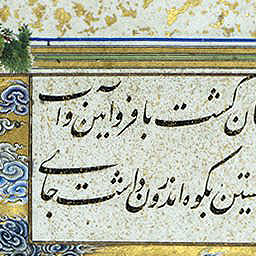 ان گشت با فر و آیین و آب
ستین بکوه اندرون داشت جای